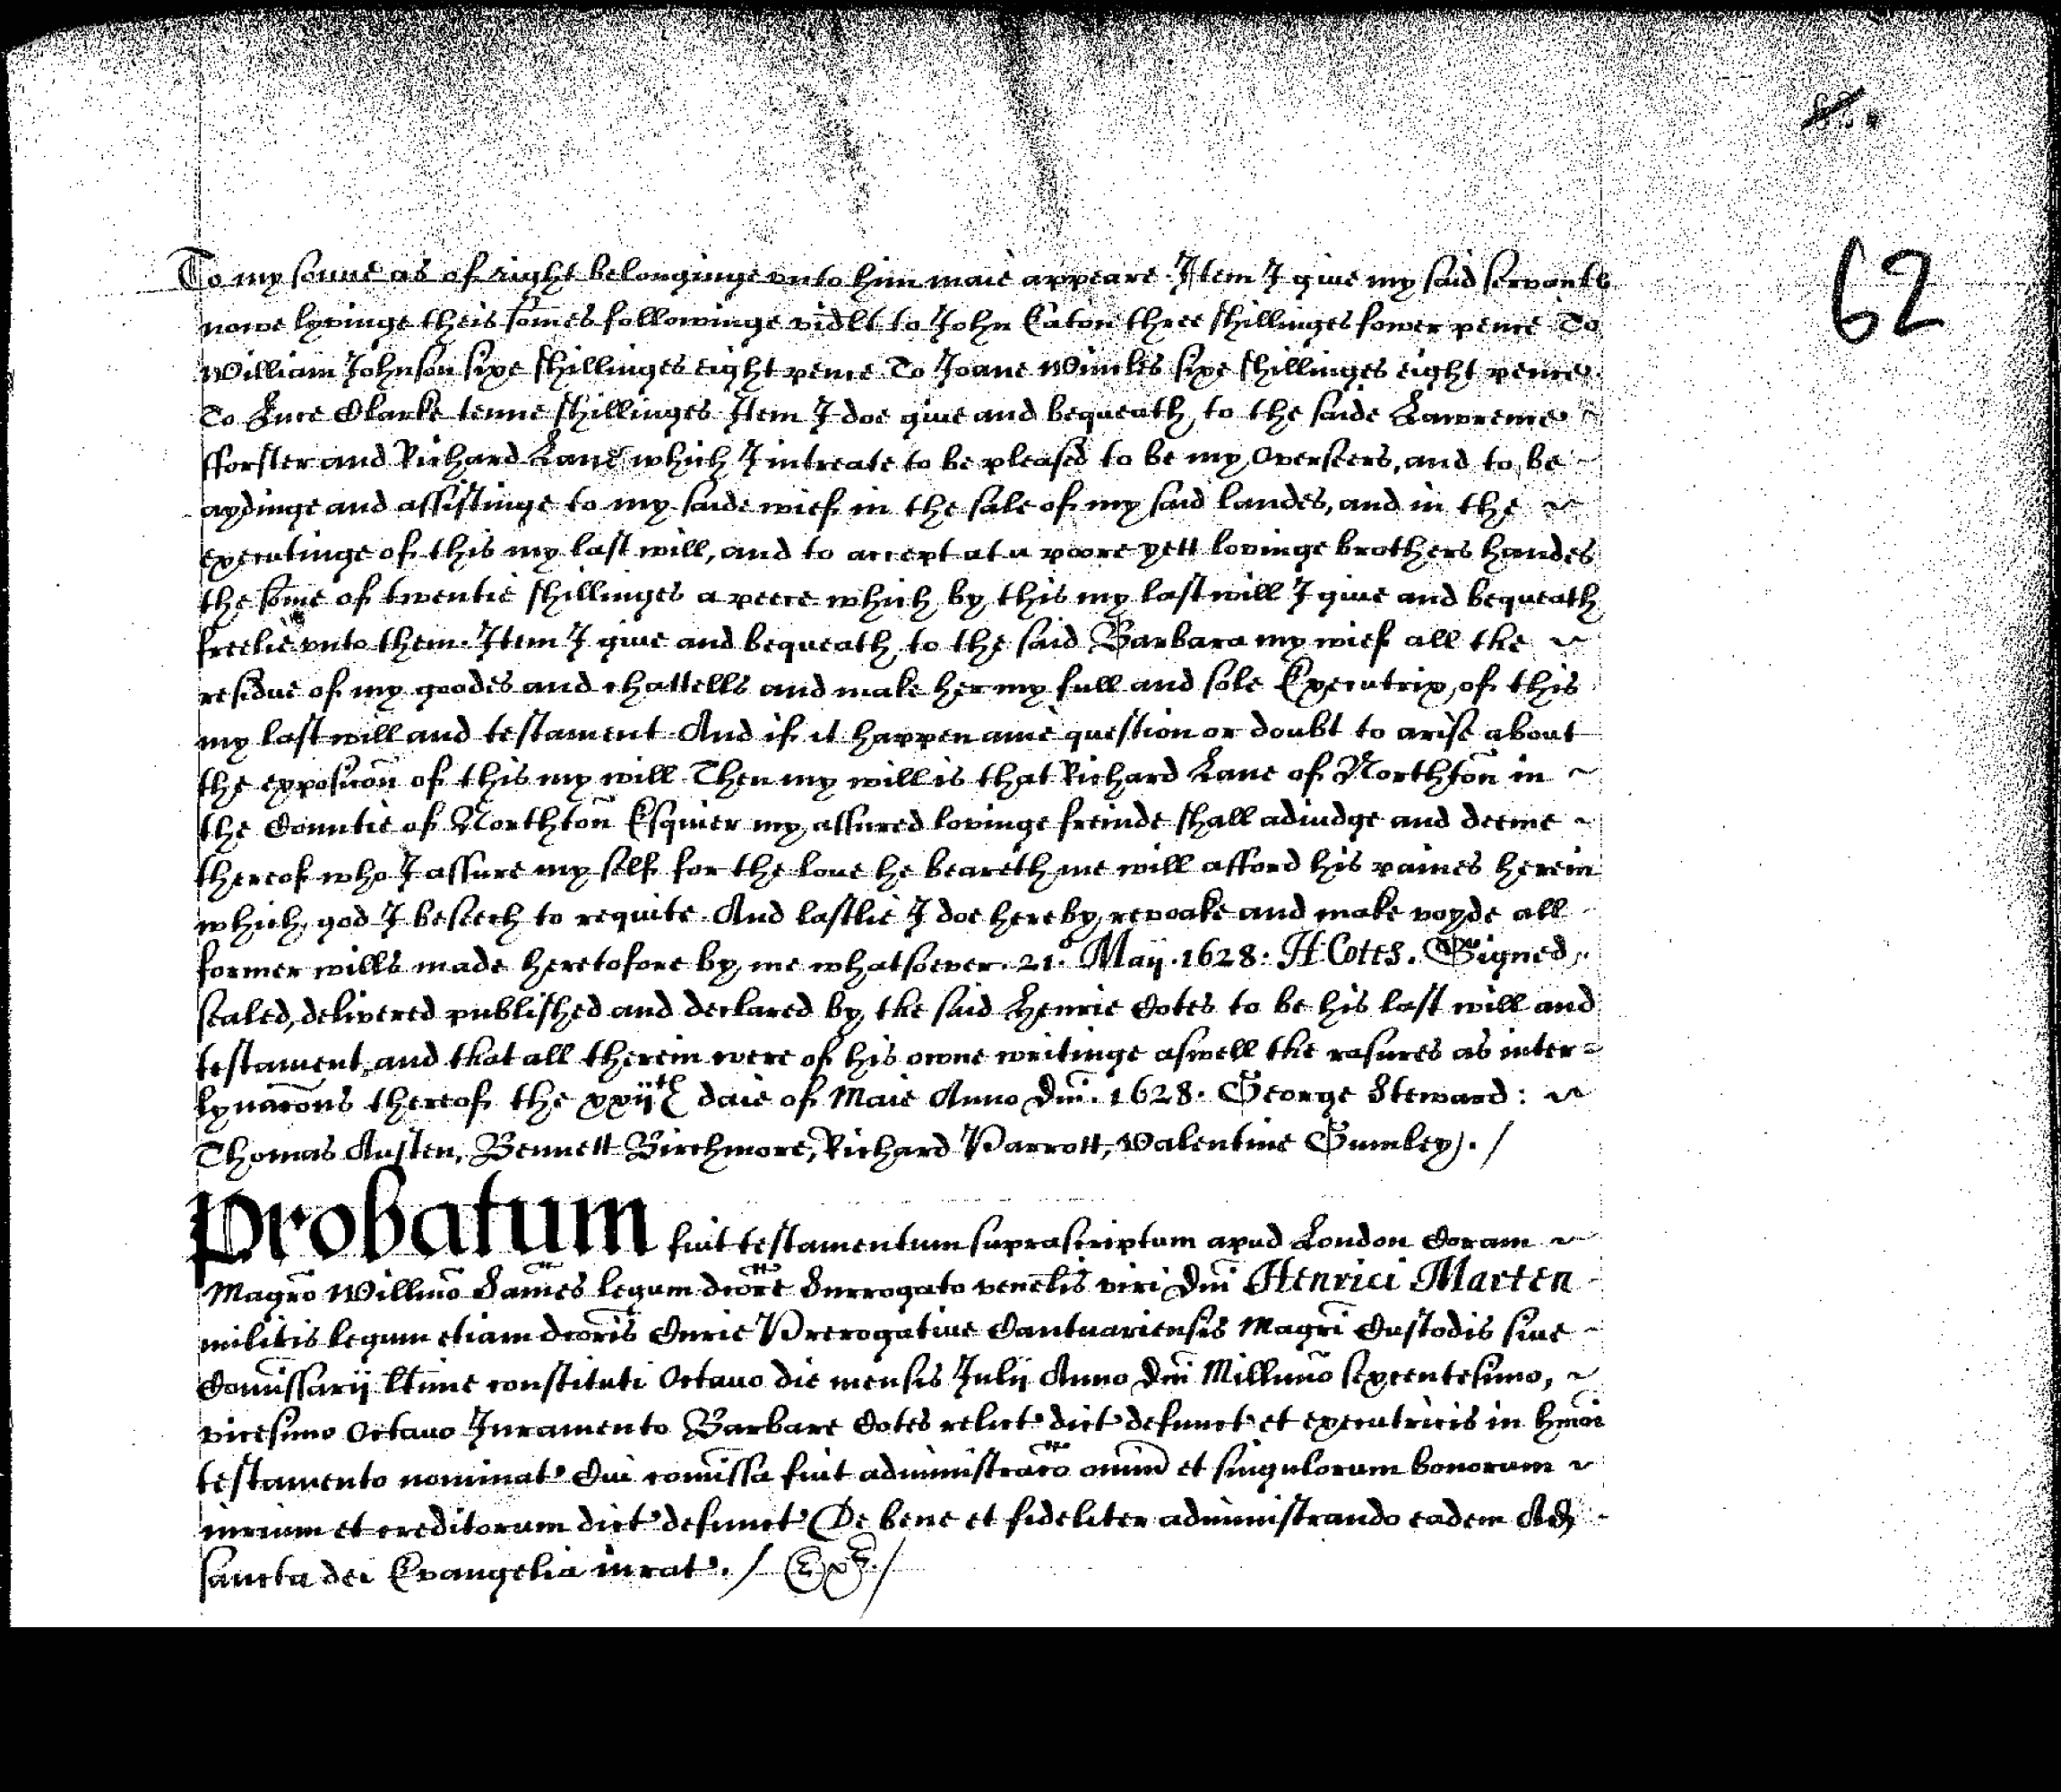 62
To my sonne as of right belonginge vnto him maie appeare. Item I giue my said servants
nowe lyvinge theis somes followinge vidlt to John Eaton three shillinges fower pence To
William Johnson sixe shillinges eight pence To Joane Winckles sixe shillinges eight pence.
To Luce Clarke tenne shillinges Item I doe giue and bequeath to the saide Lawrence
fforster and Richard Lane which I intreate to be pleased to be my Overseers, and to be
aydinge and assistinge to my saide wief in the sale of my said landes, and in the
executinge of this my last will, and to accept at a poore yett lovinge brothers handes
the some of twentie shillinges a peece which by this my last will I giue and bequeath
freelie vnto them. Item I giue and bequeath to the said Barbara my wief all the
residue of my goodes and chattells and make her my full and sole Executrix, of this
my last will and testament And if it happen anie question or doubt to arise about
the exposicon of this my will Then my will is that Richard Lane of Northton in
the Countie of Northton Esquier my assured lovinge freinde shall adiudge and deeme
thereof who I assure my self for the loue he beareth me will afford his paines herein
which, god I beseech to requite And lastlie I doe hereby revoake and make voyde all
former wills made heretofore by me whatsoever. 21.o Maij .1628. H Cotes. Signed,
sealed, delivered published and declared by the said Henrie Cotes to be his last will and
testament, and that all therein were of his owne writinge aswell the rasures as inter=
lynacons thereof the xxijth daie of Maie Anno Dni. 1628. George Steward:
Thomas Austen, Bennett Birchmore, Richard Parrott, Valentine Gumley. /
Probatum fuit testamentum suprascriptum apud London Coram
Magro Willmo Sames legum dcore Surrogato venelis viri Dni Henrici Marten
militis legum etiam dcoris Curie Prerogatiue Cantuariensis Magri Custodis siue
Comissarij ltime constituti Octauo die mensis Julij Anno Dni Millimo sexcentesimo,
vicesimo Octauo Juramento Barbare Cotes relict' dict' defunct' et executricis in hmoi
testamento nominat' Cui comissa fuit administraco omniu et singulorum bonorum
iurium et creditorum dict' defunct' De bene et fideliter administrando eadem Ad
sancta dei Evangelia iurat'. / Exr. /